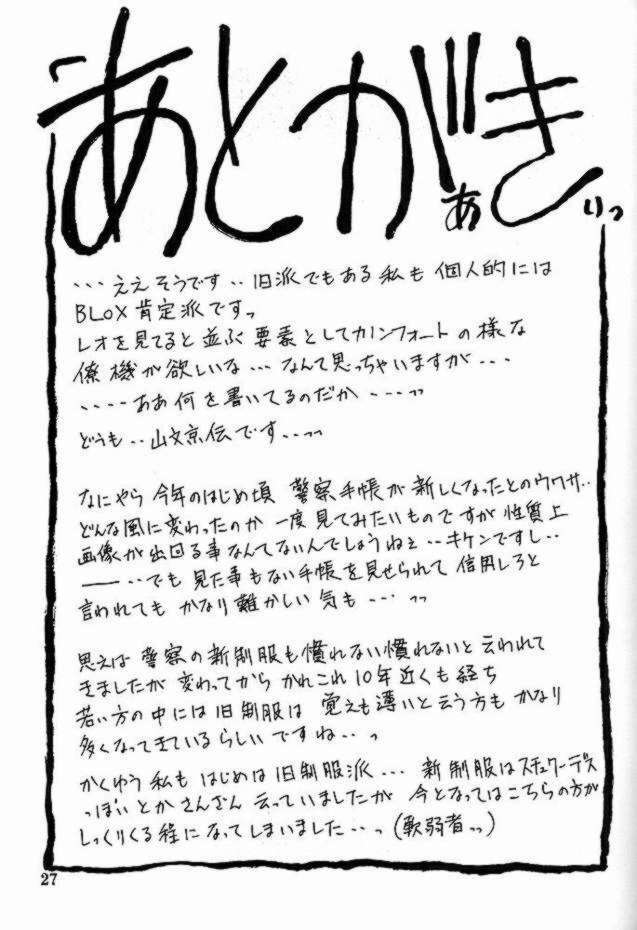 あとがきぁ
りっ
・・・ええそうです・・旧派でもある私も個人的には
BLOX肯定派ですっ
レオを見てると並ぶ要素としてカノンフォートの様な
僚機が欲しいな・・・なんて思っちゃいますが・・・
・・・・ああ何を書いてるのだか・・・・っっ
どうも・・山文京伝です・・っっ
なにやら今年のはじめ頃警察手帳が新しくなったとのウワサ・・
どんな風に変わったのか一度見てみたいものですが性質上
画像が出回る事なんてないんでしょうねぇ・・キケンですし・・
――・・でも見た事もない手帳を見せられて信用しろと
言われてもかなり難かしい気も・・・っっ
思えば警察の新制服も慣れない慣れないと云われて
きましたが変わってからかれこれ10年近くも経ち
若い方の中には旧制服は覚えも薄いと云う方もかなり
多くなってきているらしいですね・・っ
かくゆう私もはじめは旧制服派・・・新制服はスチュワーデス
っぽいとかさんざん云っていましたが今となってはこちらの方が
しっくりくる程になってしまいました・・っ(軟弱者っっ)
27